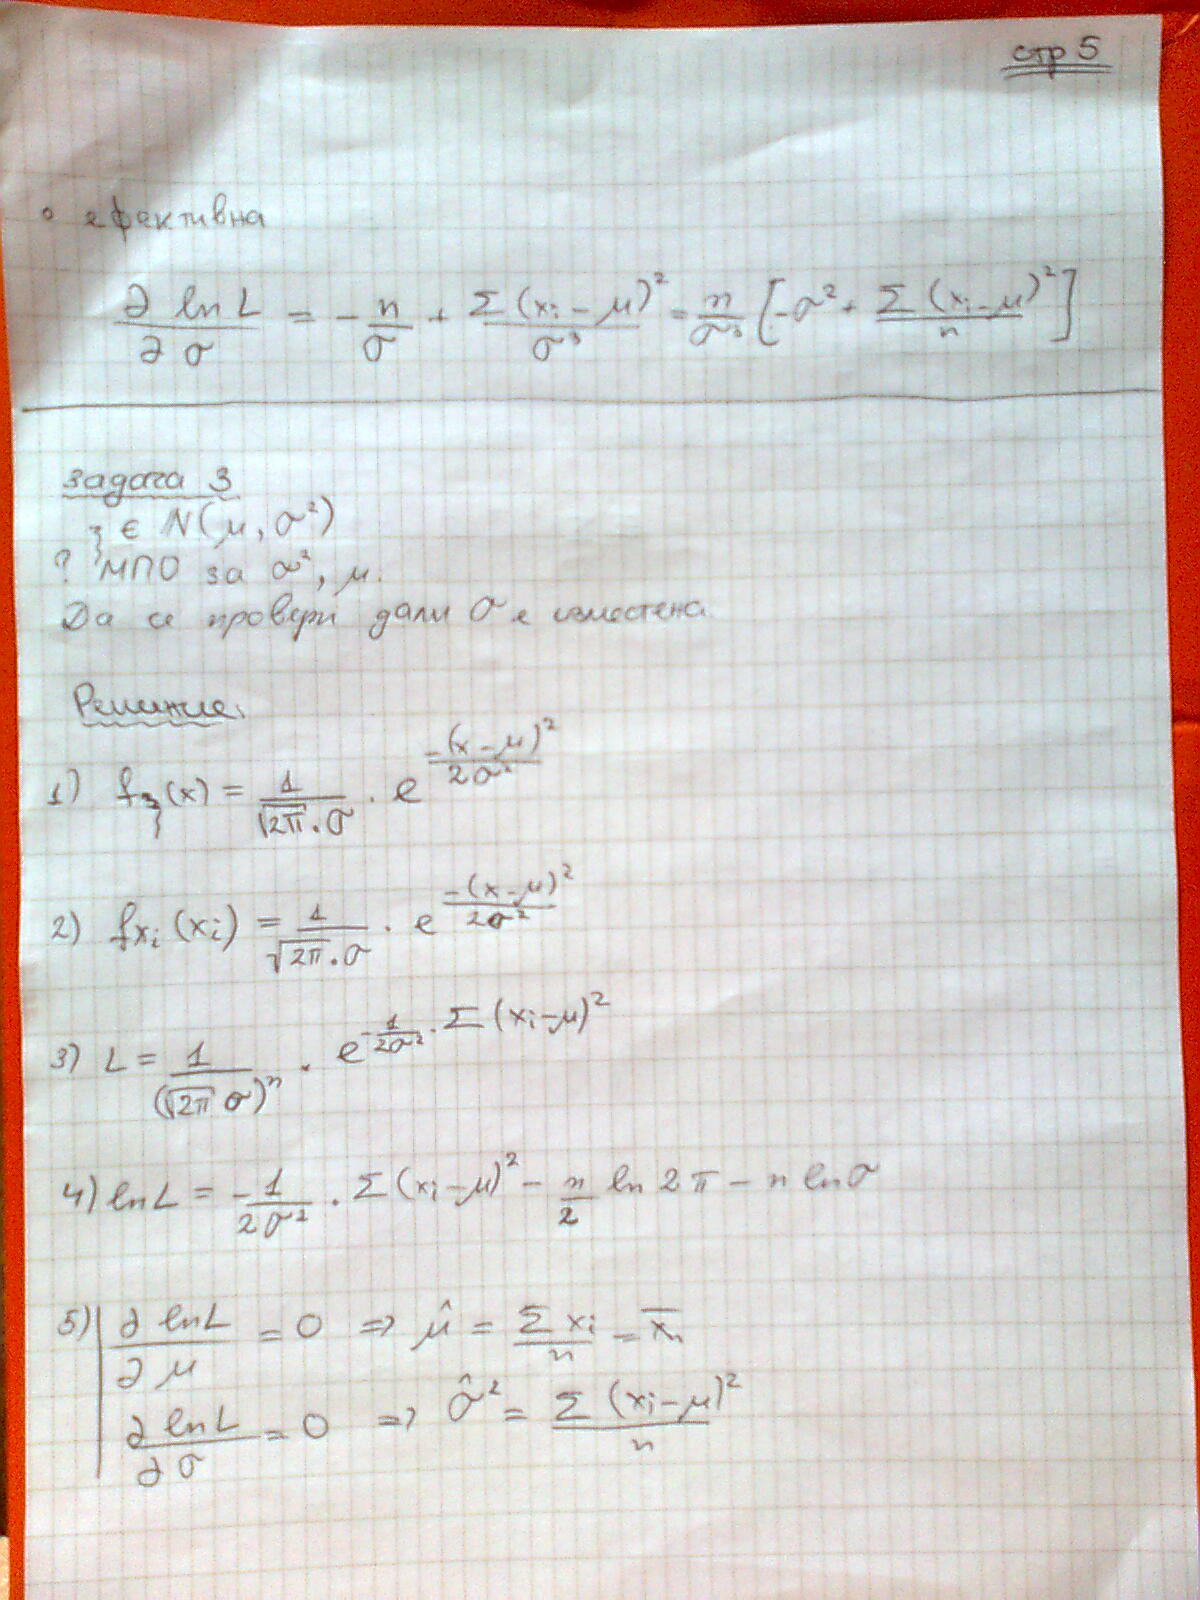 стр 5
° ефективна
∂ ln L / ∂ σ = - n/σ + Σ (xi - μ)² / σ³ = n/σ³ [-σ² + Σ (xi - μ)² / n]
Задача 3
ξ ∈ N(μ, σ²)
? МПО за σ², μ.
Да се провери дали σ е изместена.
Решение:
1) fξ(x) = 1/(√2π . σ) . e^(-(x - μ)²/2σ²)
2) fxi(xi) = 1/(√2π . σ) . e^(-(x - μ)²/2σ²)
3) L = 1/(√2π σ)ⁿ . e^(-1/2σ² . Σ (xi - μ)²)
4) ln L = -1/2σ² . Σ (xi - μ)² - n/2 ln 2π - n ln σ
5) | ∂ ln L / ∂ μ = 0 => μ̂ = Σ xi / n = x̄n
∂ ln L / ∂ σ = 0 => σ̂² = Σ (xi - μ)² / n